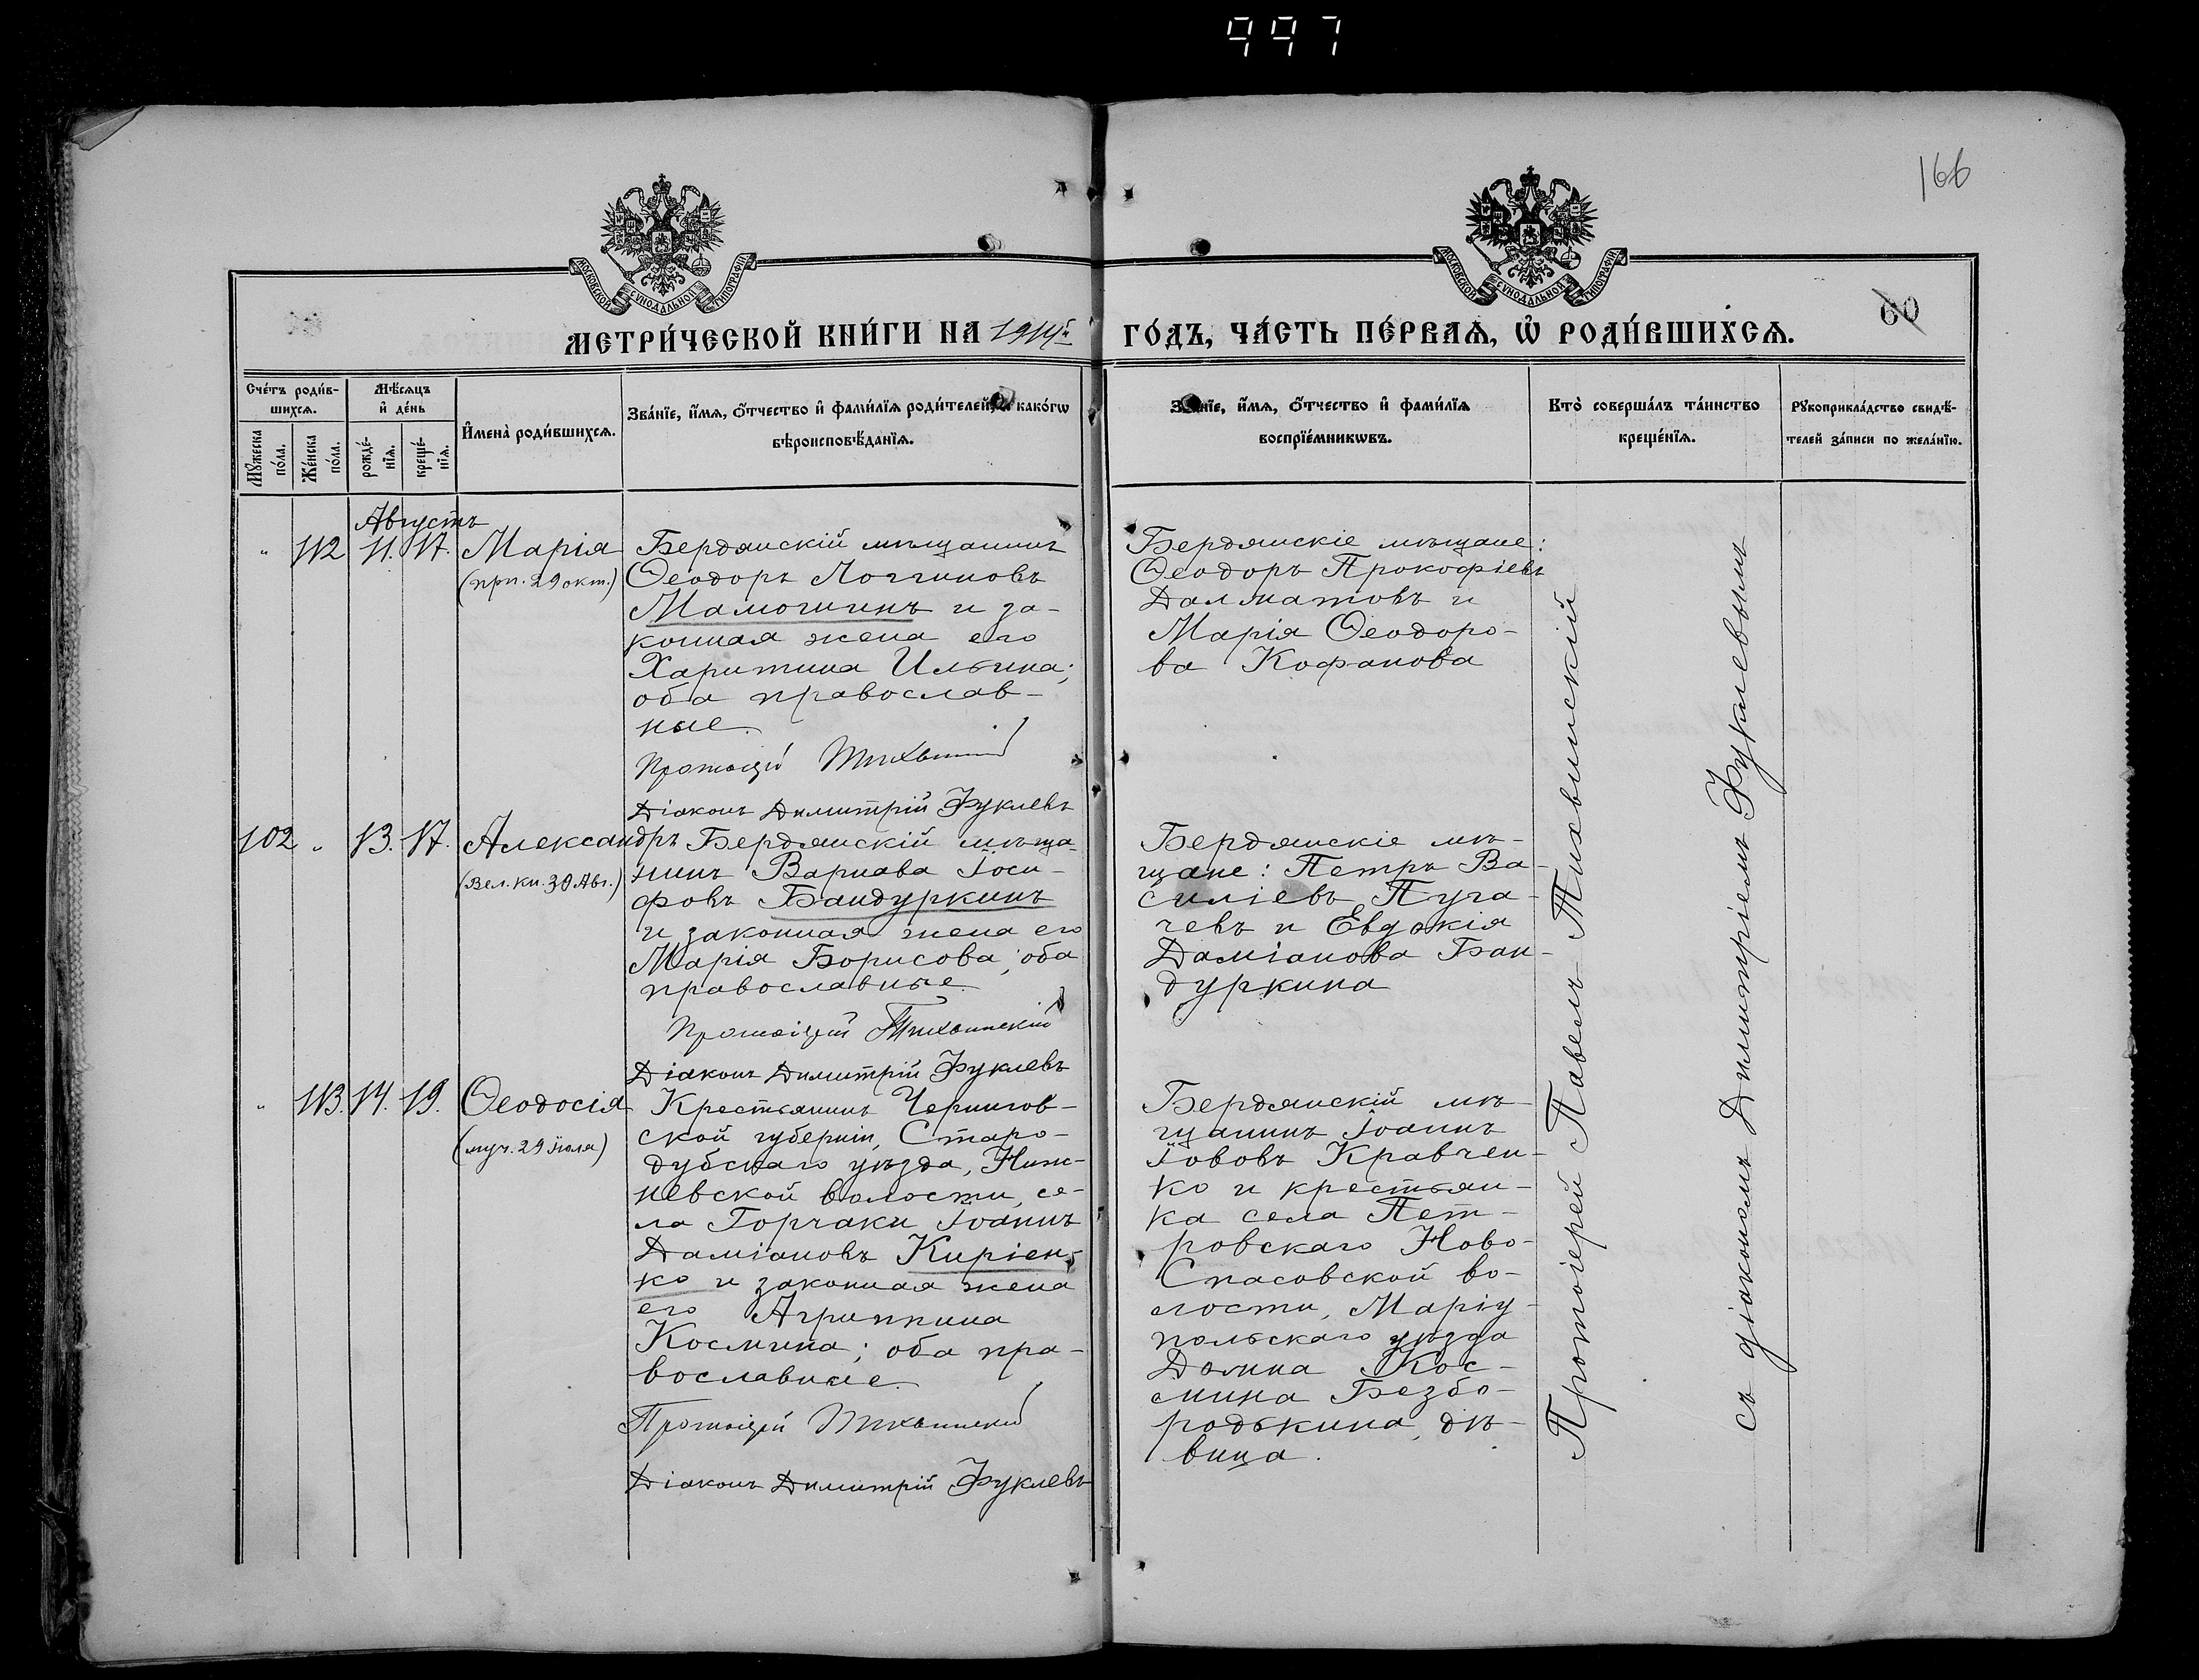 997
166
МОСКОВСКОЙ СѴНОДАЛЬНОЙ ТИПОГРАФІИ
МОСКОВСКОЙ СѴНОДАЛЬНОЙ ТИПОГРАФІИ
60
МЕТРИ́ЧЕСКОЙ КНИ́ГИ НА 1914й ГО́ДЪ, ЧА́СТЬ ПЕ́РВАѦ, Ѿ РОДИ́ВШИХСѦ.
Сче́тъ роди́в-
шихсѧ.
Мꙋ́жеска по́ла.
Же́нска по́ла.
Мѣ́сѧцъ
и҆ де́нь
рожде́-
нїѧ.
креще́-
нїѧ.
И҆мена̀ роди́вшихсѧ.
Зва́нїе, и҆́мѧ, ѻ҆́тчество и҆ фами́лїѧ роди́телей, и҆ како́гѡ
вѣроисповѣ́данїѧ.
Зва́нїе, и҆́мѧ, ѻ҆́тчество и҆ фами́лїѧ
воспрїе́мникѡвъ.
Кто̀ соверша́лъ та́инство
креще́нїѧ.
Рꙋкоприкла́дство свидѣ́-
телей за́писи по жела́нїю.
Августъ
" 112 11. 17. Марія
(прп. 29 окт.)
Бердянскій мѣщанинъ
Ѳеодоръ Логгиновъ
Мамошинъ и за-
конная жена его
Харитина Ильина;
оба православ-
ные.
Протоіерей Тихвинскій
Діаконъ Димитрій Фуклевъ
Бердянскіе мѣщане:
Ѳеодоръ Прокофіевъ
Далматовъ и
Марія Ѳеодоро-
ва Кофанова
102 " 13. 17. Александръ
(Вел. кн. 30 Авг.)
Бердянскій мѣща-
нинъ Варнава Іоси-
фовъ Бандуркинъ
и законная жена его
Марія Борисова; оба
православные.
Протоіерей Тихвинскій
Діаконъ Димитрій Фуклевъ
Бердянскіе мѣ-
щане: Петръ Ва-
силіевъ Пуга-
чевъ и Евдокія
Даміанова Бан-
дуркина
" 113. 14. 19. Ѳеодосія
(муч. 29 Іюля)
Крестьянинъ Чернигов-
ской губерніи, Старо-
дубскаго уѣзда, Ниж-
невской волости, се-
ла Горчаки Іоаннъ
Даміановъ Киріен-
ко и законная жена
его Агриппина
Космина; оба пра-
вославные.
Протоіерей Тихвинскій
Діаконъ Димитрій Фуклевъ
Бердянскій мѣ-
щанинъ Іоаннъ
Іововъ Кравчен-
ко и крестьян-
ка села Пет-
ровскаго Ново-
Спасовской во-
лости, Маріу-
польскаго уѣзда
Домна Кос-
мина Безбо-
родькина, дѣ-
вица.
Протоіерей Павелъ Тихвинскій
съ діакономъ Димитріемъ Фуклевымъ